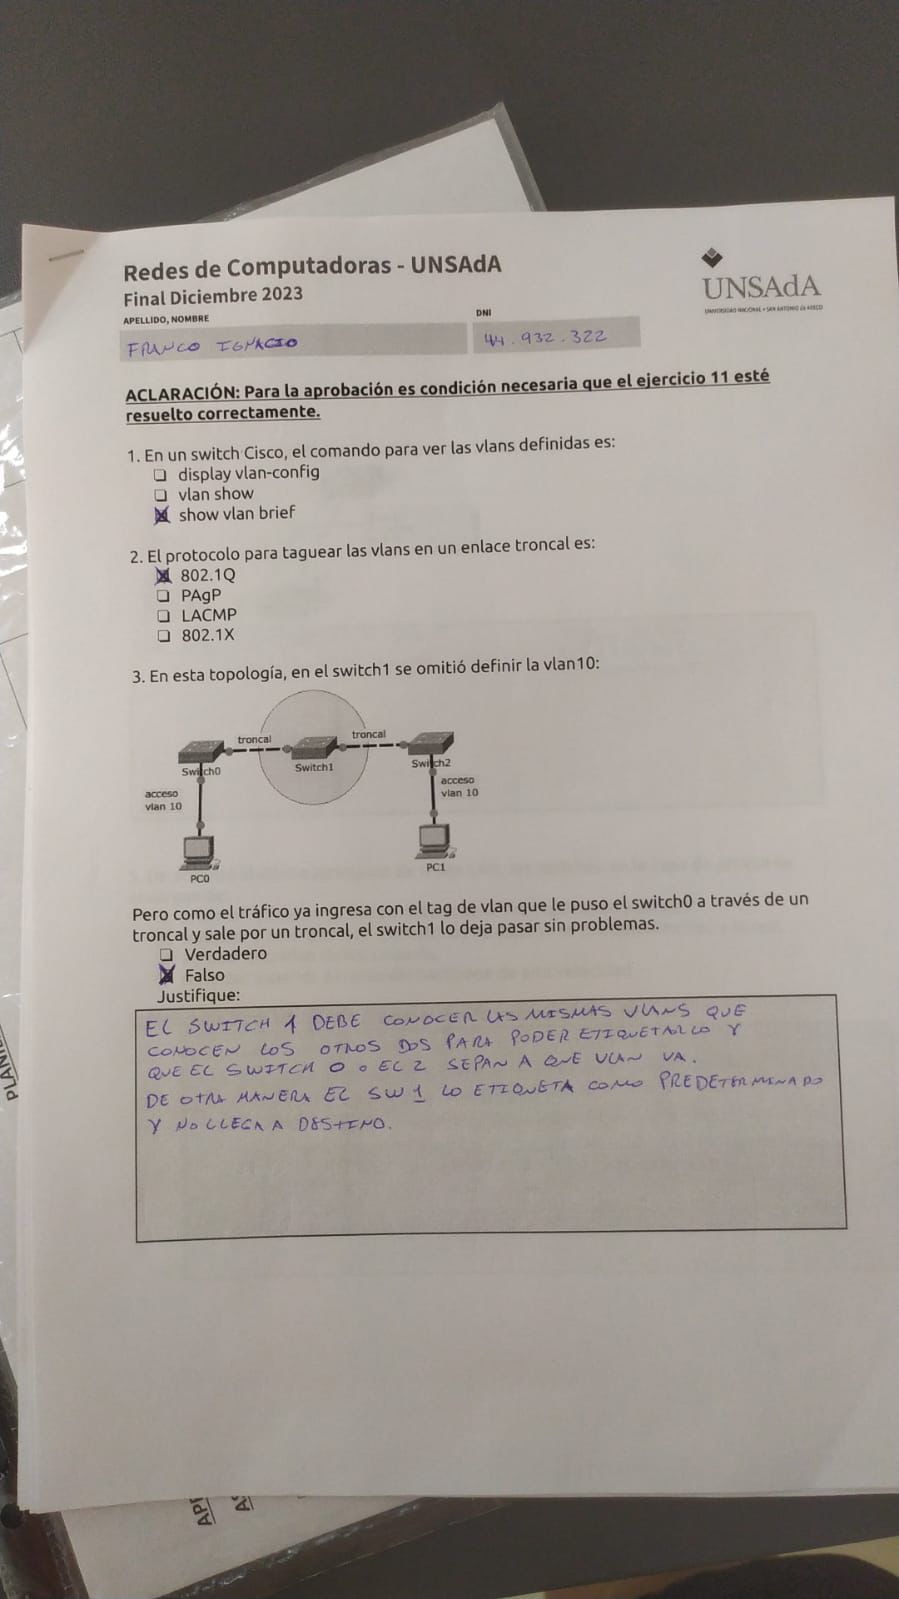 Redes de Computadoras - UNSAdA
Final Diciembre 2023
UNSAdA
UNIVERSIDAD NACIONAL • SAN ANTONIO de ARECO
APELLIDO, NOMBRE
DNI
FRANCO IGNACIO
44.932.322
ACLARACIÓN: Para la aprobación es condición necesaria que el ejercicio 11 esté
resuelto correctamente.
1. En un switch Cisco, el comando para ver las vlans definidas es:
display vlan-config
vlan show
show vlan brief
2. El protocolo para taguear las vlans en un enlace troncal es:
802.1Q
PAgP
LACMP
802.1X
3. En esta topología, en el switch1 se omitió definir la vlan10:
troncal
troncal
Switch0
Switch1
Switch2
acceso
vlan 10
acceso
vlan 10
PC0
PC1
Pero como el tráfico ya ingresa con el tag de vlan que le puso el switch0 a través de un
troncal y sale por un troncal, el switch1 lo deja pasar sin problemas.
Verdadero
Falso
Justifique:
EL SWITCH 1 DEBE CONOCER LAS MISMAS VLANS QUE
CONOCEN LOS OTROS DOS PARA PODER ETIQUETARLO Y
QUE EL SWITCH 0 O EL 2 SEPAN A QUE VLAN VA.
DE OTRA MANERA EL SW 1 LO ETIQUETA COMO PREDETERMINADO
Y NO LLEGA A DESTINO.